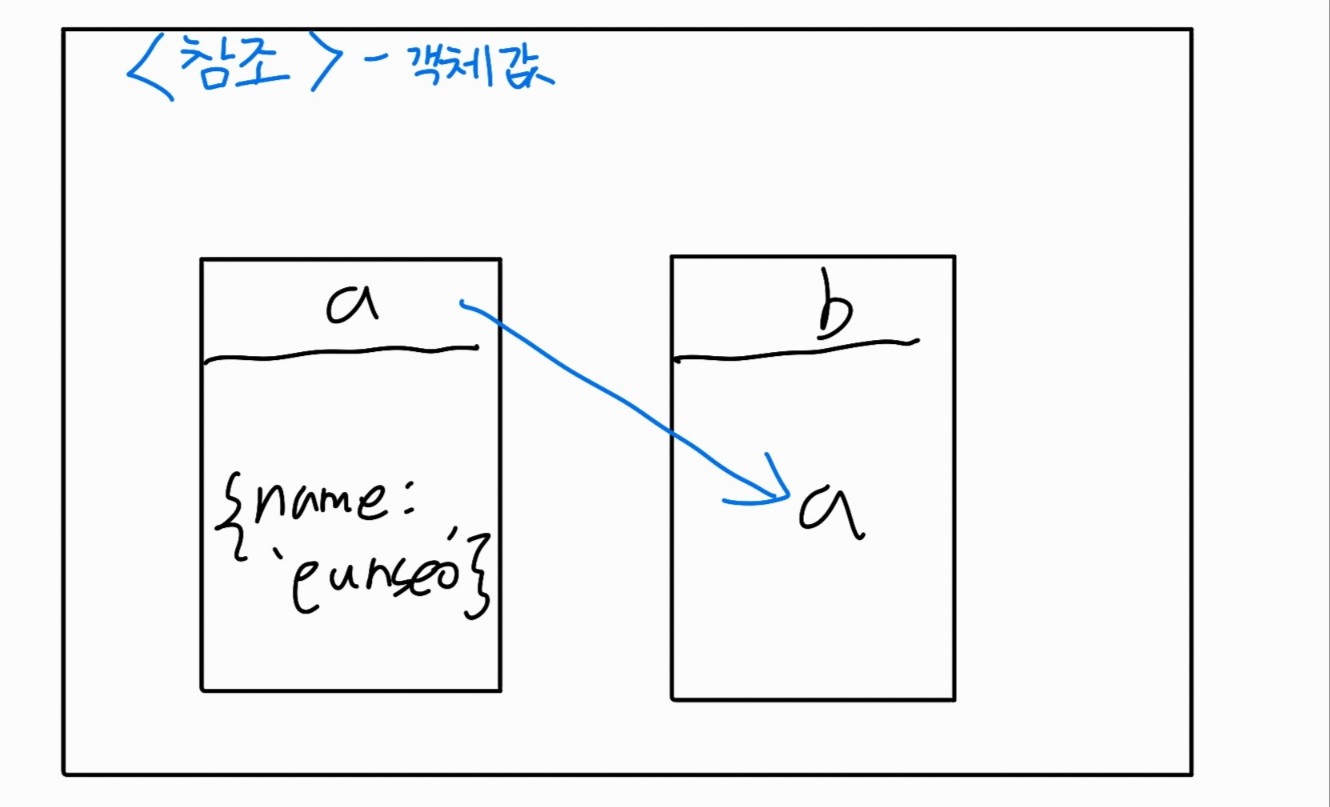 <참조> - 객체값
a
b
{name:
'eunseo'}
a